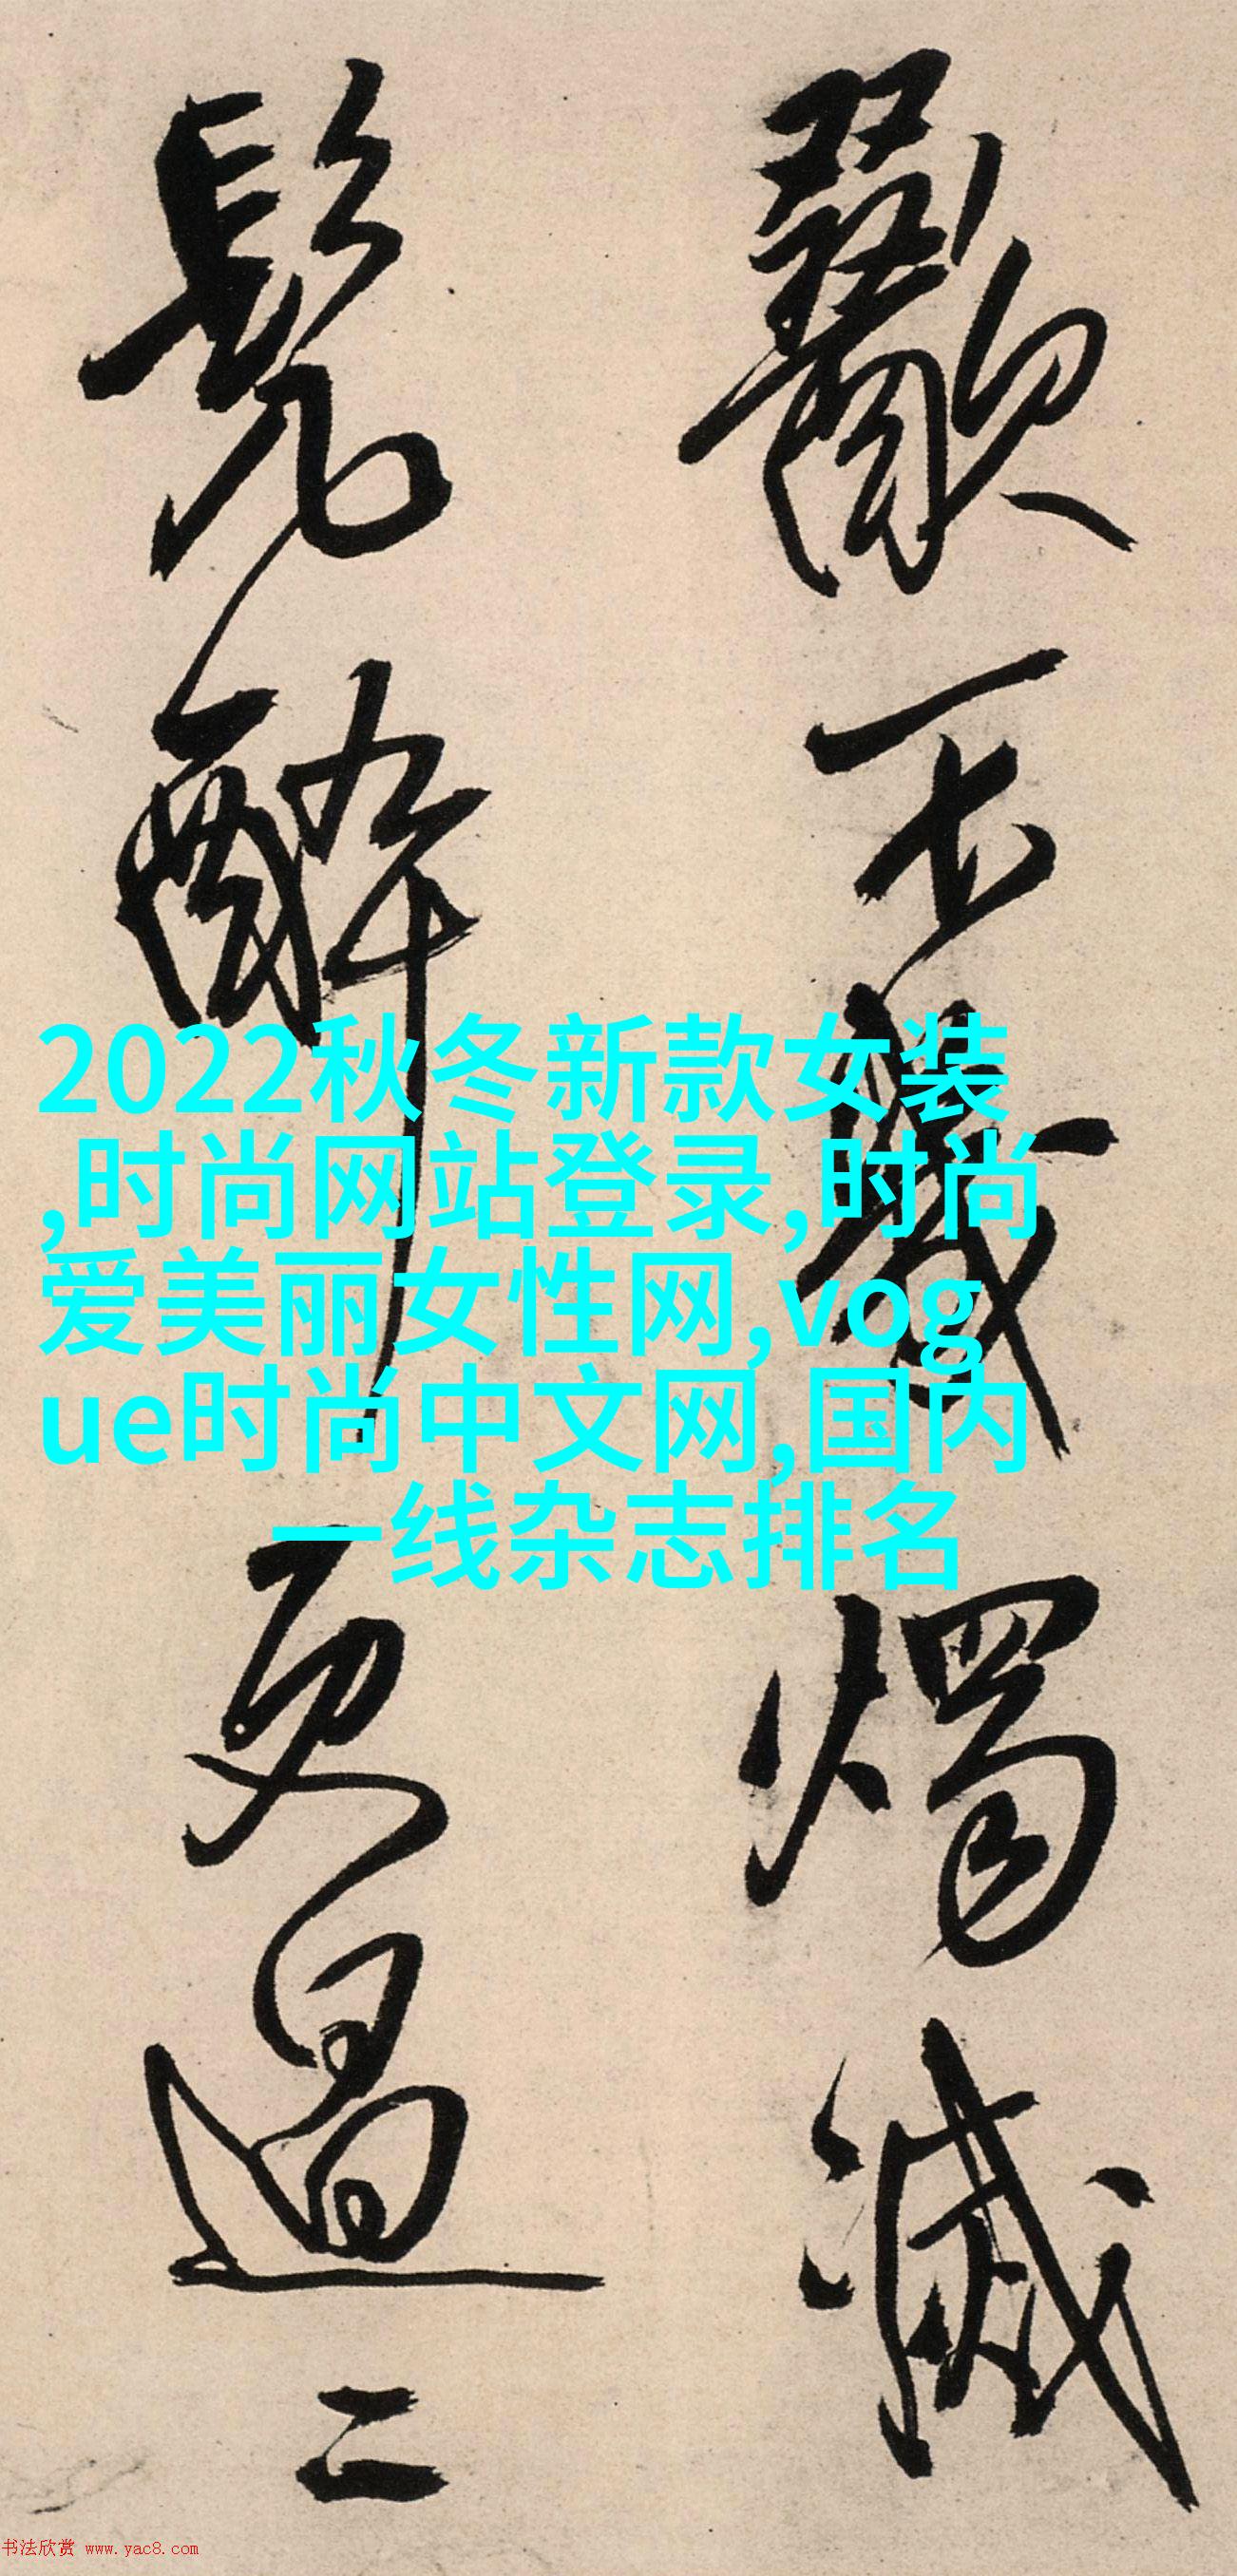 不 燭滅
髡醉更過二
2022秋冬新款女装
,时尚网站登录,时尚
爱美丽女性网,vog
ue时尚中文网,国内
一线杂志排名
书法欣赏 www.yac8.com